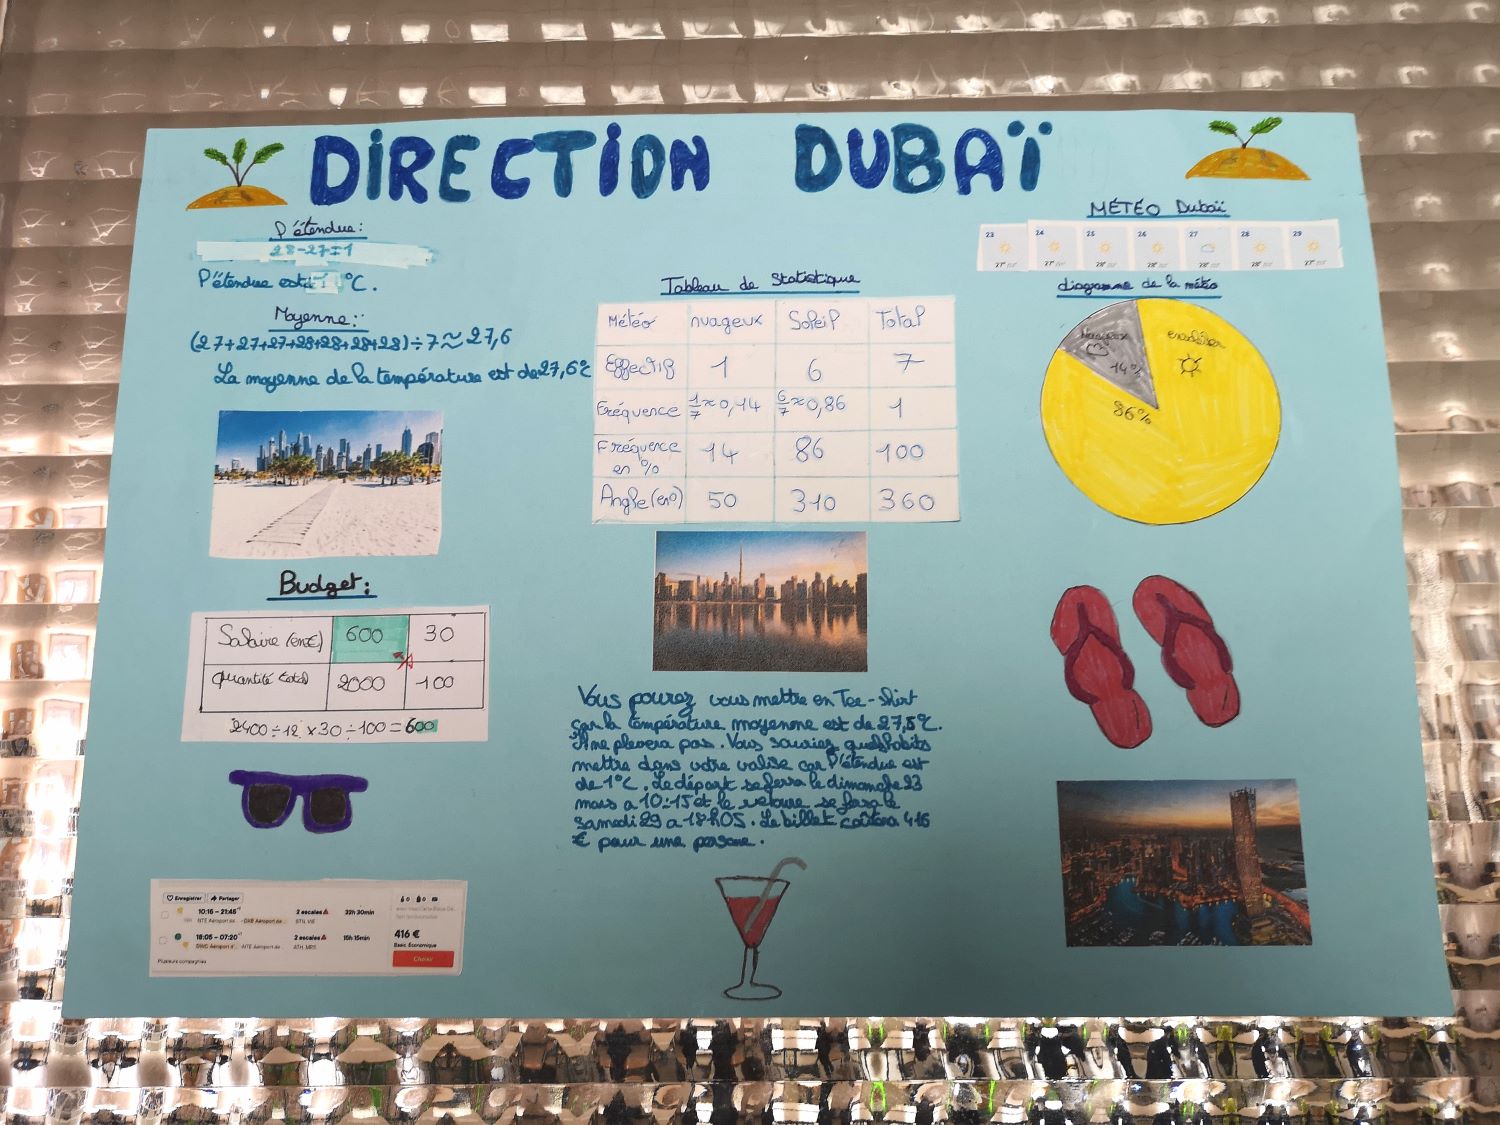 DIRECTION DUBAÏ
l'étendue:
28-27=1
l'étendue est 1°C.
Moyenne:
(27+27+27+28+28+28+28)÷7≈27,6
La moyenne de la température est de 27,6°C
MÉTÉO Dubaï
23 24 25 26 27 28 29
27° 27° 28° 28° 28° 28° 27°
diagramme de la météo
nuageux
14%
ensoleiller
86%
Tableau de Statistique
Météo nuageux Soleil Total
Effectif 1 6 7
Fréquence 1/7≈0,14 6/7≈0,86 1
Fréquence en % 14 86 100
Angle (en°) 50 310 360
Budget:
Salaire (en€) 600 30
Quantité total 2000 100
2400÷12×30÷100=600
Vous pourez vous mettre en Tee-Shirt
car la température moyenne est de 27,5°C.
Il ne plevera pas. Vous sauriez quels habits
mettre dans votre valise car l'étendue est
de 1°C. Le départ se ferra le dimanche 23
mars a 10:15 et le retoure se fera le
samedi 29 a 18h05. Le billet coûtera 416
€ pour une persone.
Enregistrer Partager
10:15 – 21:45+1 2 escales 32h 30min
NTE Aéroport de... - DXB Aéroport de... STN, VIE
18:05 – 07:20+1 2 escales 15h 15min
DWC Aéroport d'... - NTE Aéroport de... ATH, MRS
Plusieurs compagnies
0 0
416 €
Basic Économique
Choisir